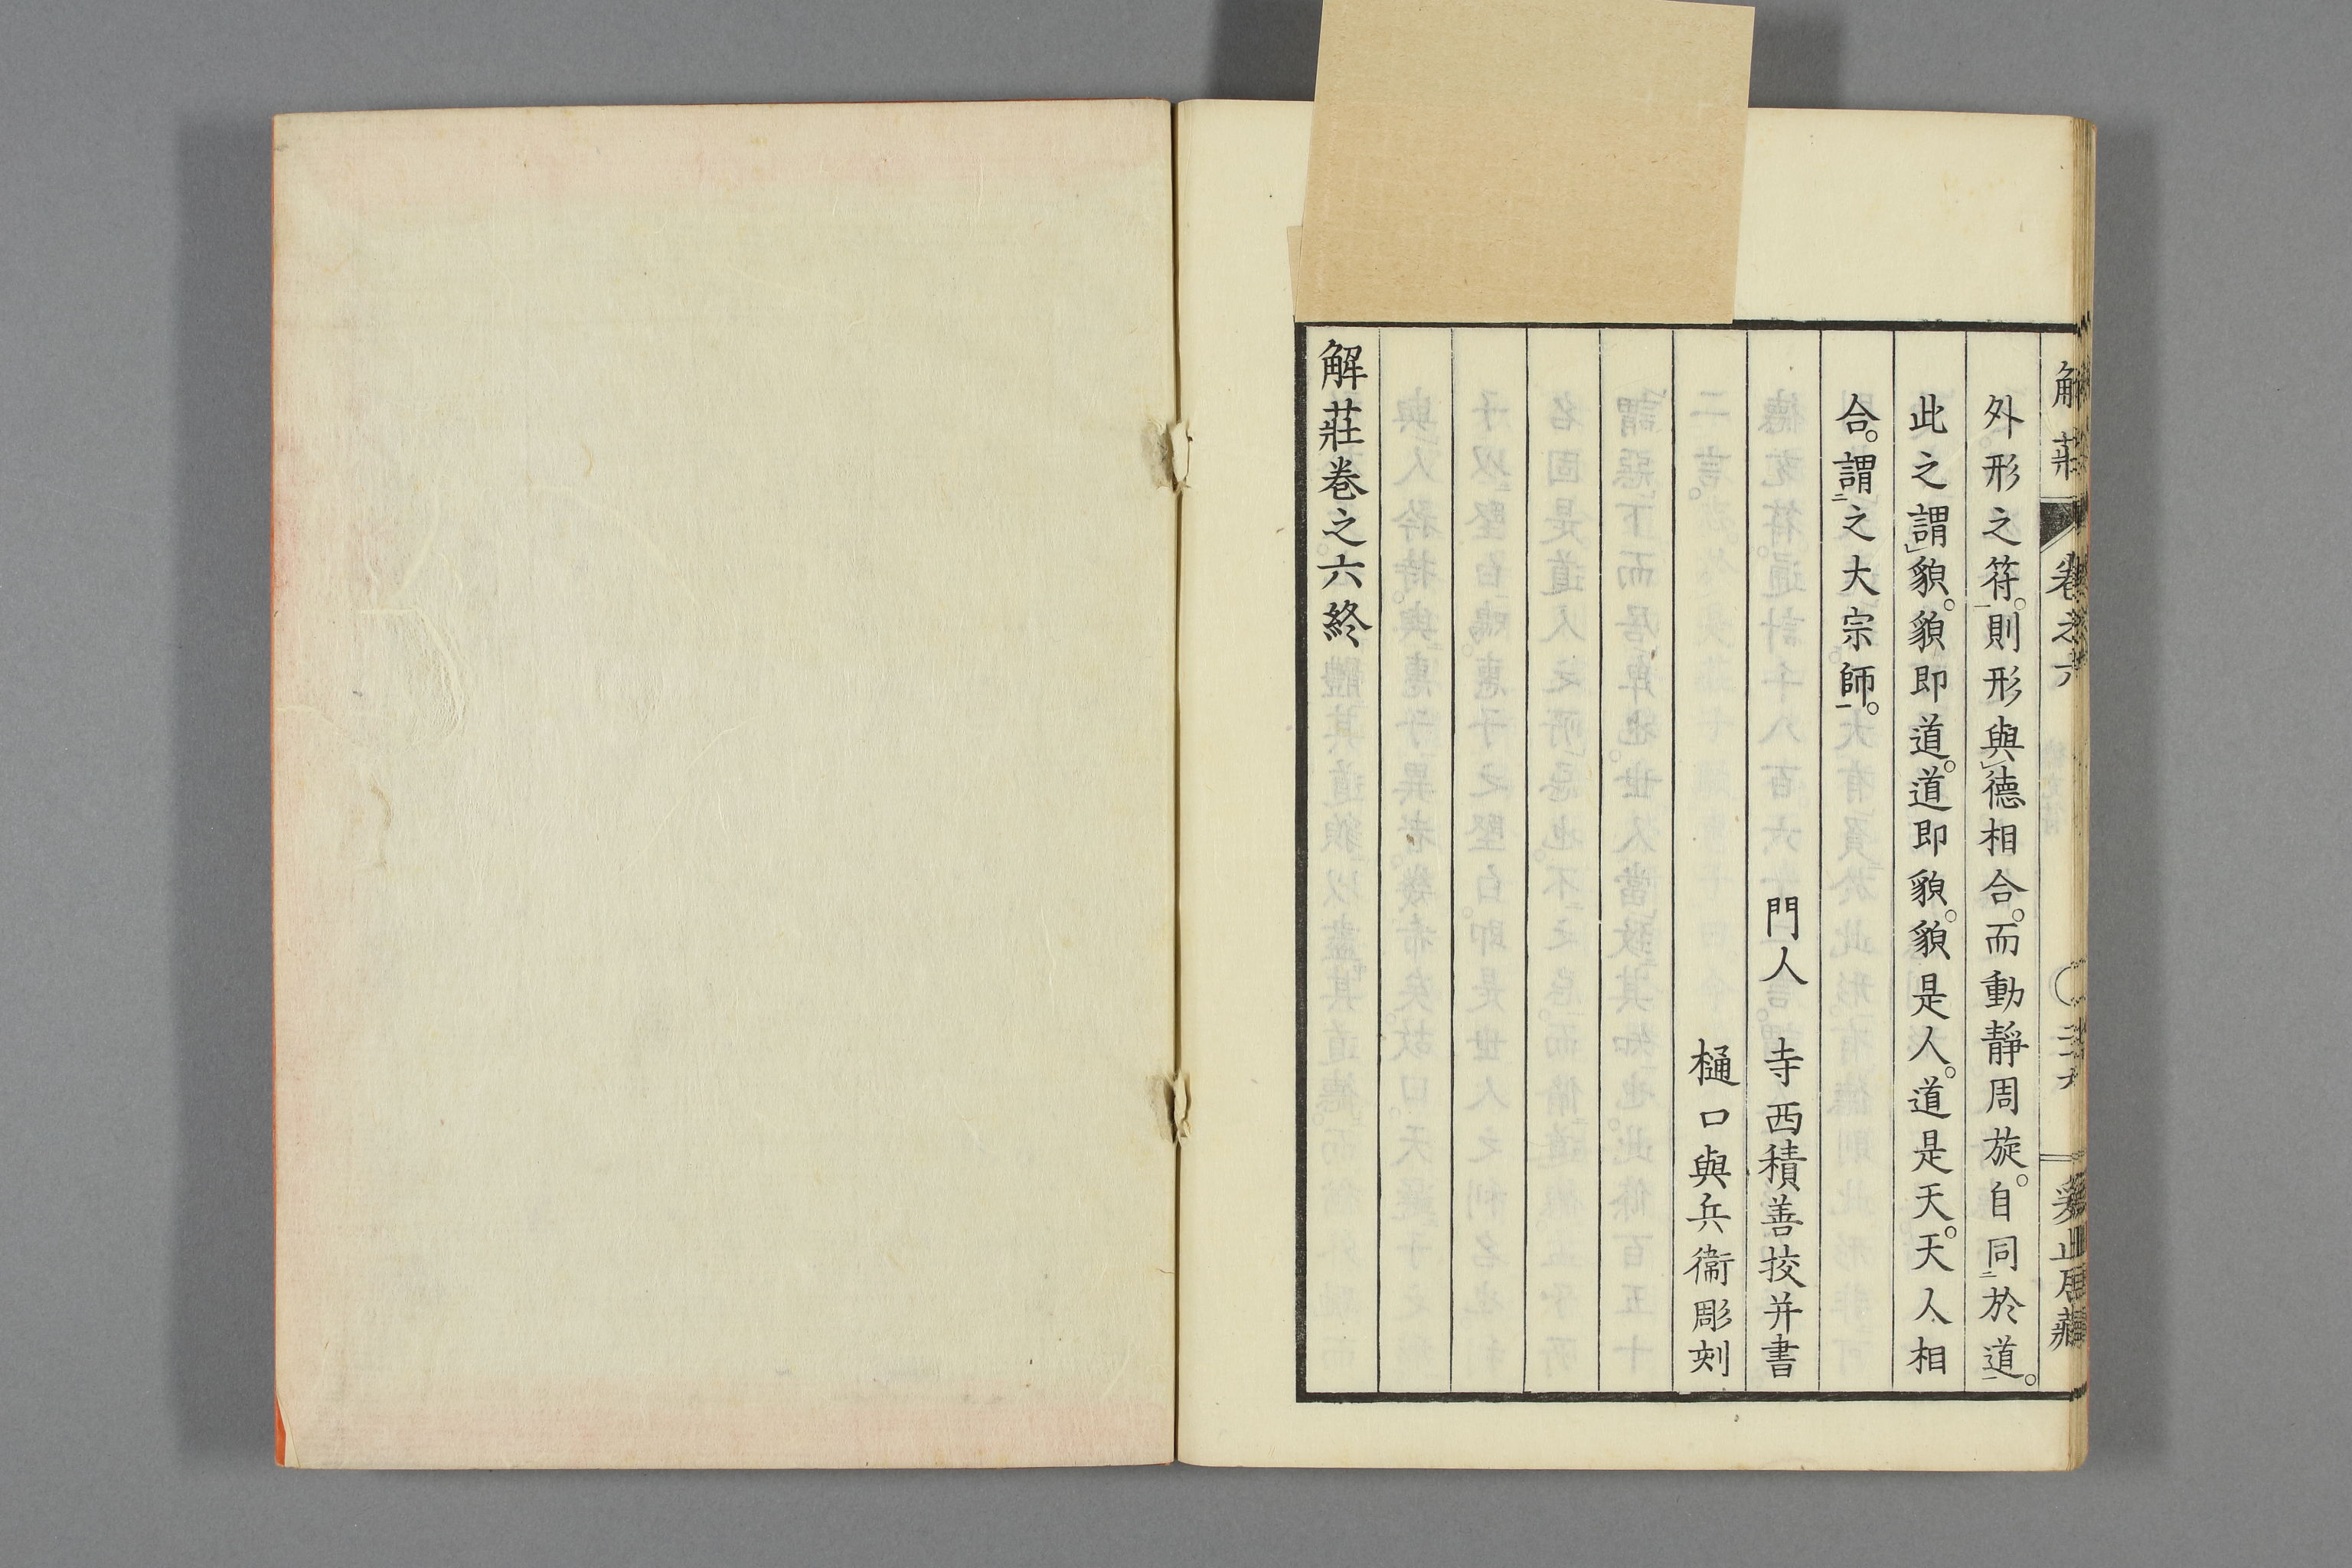 解莊 卷之六
外形之符。則形與德相合。而動靜周旋。自同於道。
此之謂貌。貌即道。道即貌。貌是人。道是天。天人相
合。謂之大宗師。
門人 寺西積善挍并書
樋口與兵衞彫刻
解莊卷之六終